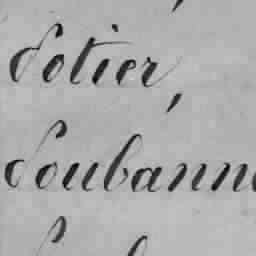 Sotier,
Soubann